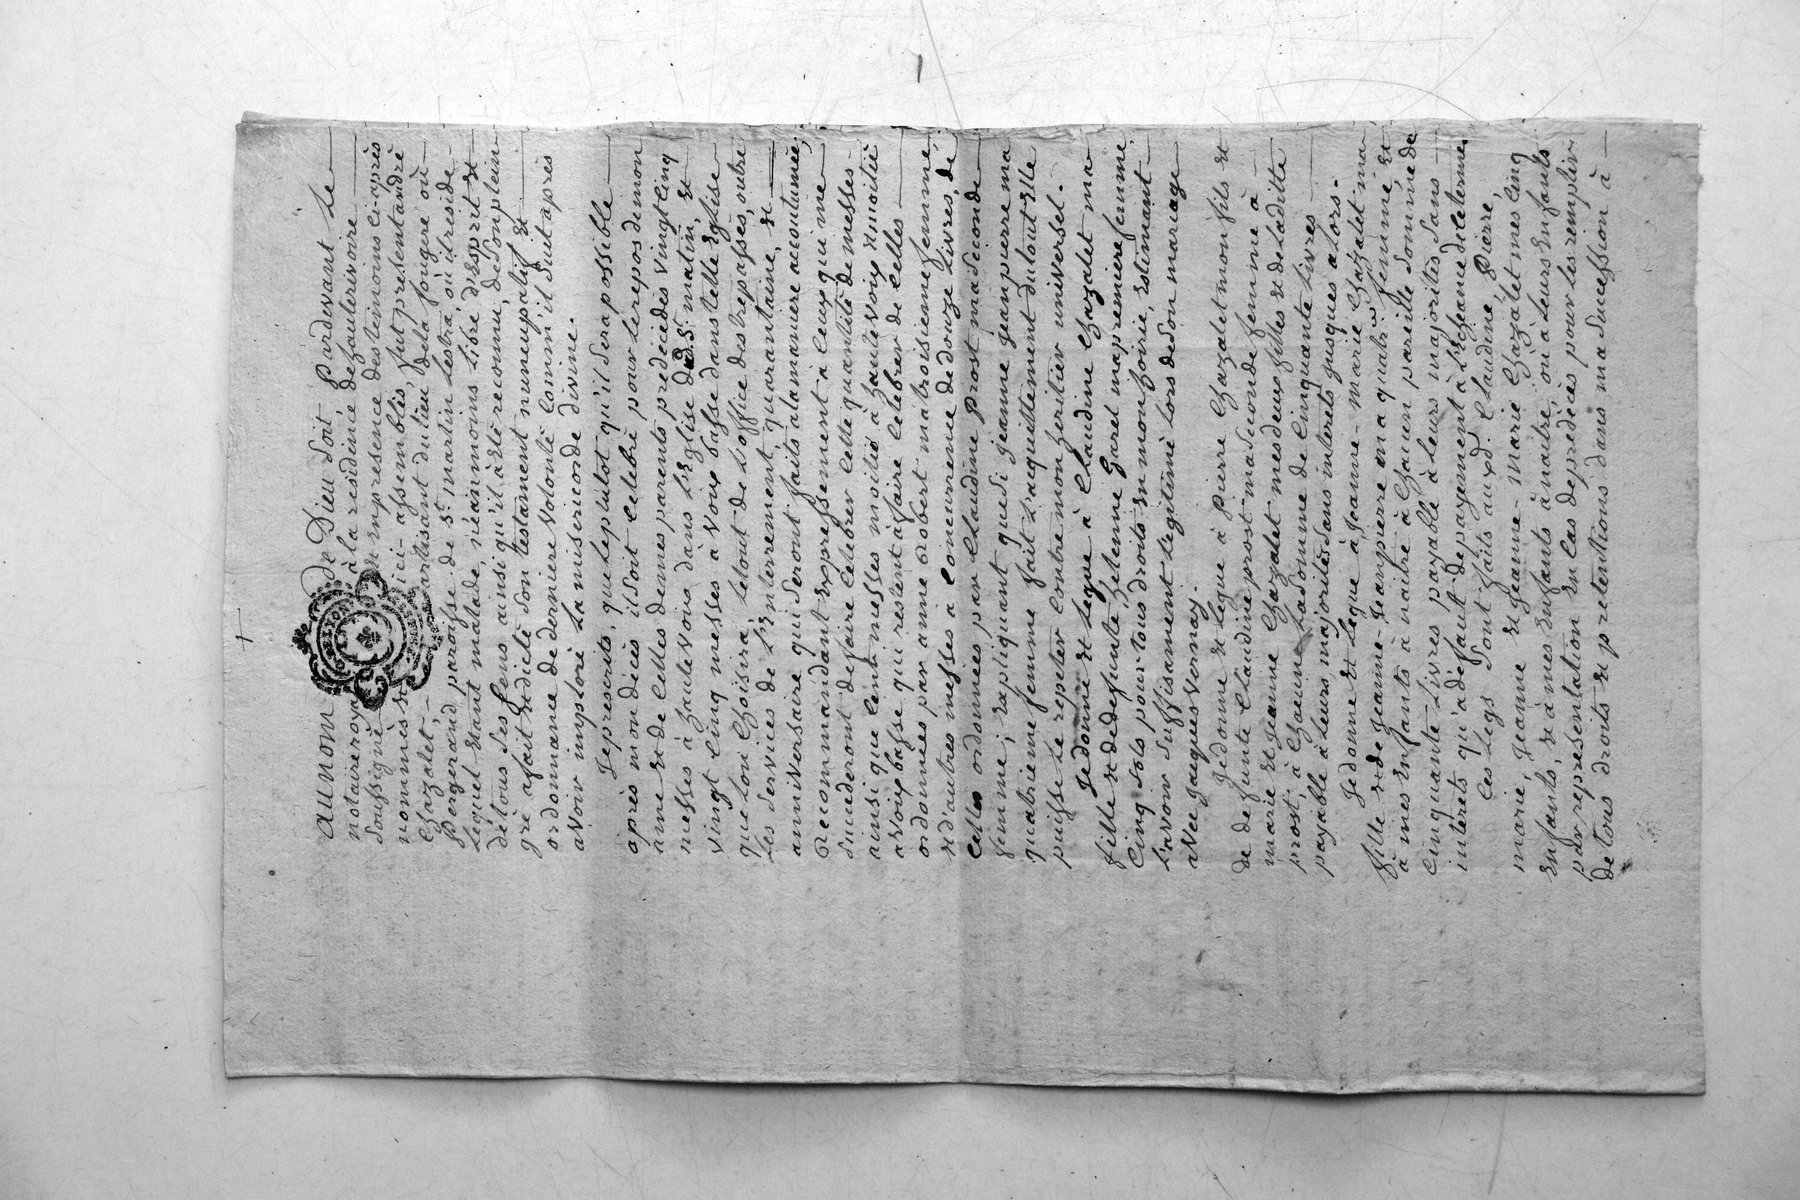 Au nom de Dieu soit, Pardevant le
notaire royal à la residence de hauterivoire
soussigné en presence des temoins ci-après
nommés et ici-assemblés, fut present andrè
Chazalet, artisant du lieu de la fougere où
Pergerand paroisse de St. martin lestra, où il reside
Lequel etant malade, néanmoins libre d'esprit et
de tous ses sens ainsi qu'il a été reconnu, de son plein
gré a fait et dicté son testament nuncupatif et
ordonnance de derniere volonté comm'il suit après
avoir imploré la misericorde divine.
Je prescrits, que le plutot qu'il sera possible
après mon décès il soit celebré pour le repos de mon
ame et de celles de mes parents predecedés vingt cinq
messes à haute vous dans l'Eglise dud. St. matin, et
vingt cinq messes à voux basse dans telle Eglise
que l'on choisira, le tout de l'office des trepassés, outre
les services de l'enterrement, quarantaine, et
anniversaire qui seront faits a la maniere accoutumée,
recommandant expressement à ceux qui me
succederont de faire celebrer cette quantité de messes
ainsi que cent messes moitié à haute voix et moitié
a voix basse qui restent à faire celebrer de celles
ordonnées par anne robert ma troisieme femme
et d'autres messes a concurrence de douze livres, de
celles ordonnées par Claudine prost ma seconde
femme; expliquant que si jeanne jeanpierre ma
quatrieme femme fait l'acquittement du tout elle
puisse le repeter contre mon heritier universel.
Je donne et legue à Claudine Chazalet ma
fille et de defunte helenne garel ma premiere femme,
Cinq sols pour tous droits en mon hoirie, estimant
l'avoir suffisament legitimé lors de son mariage
avec jacques vernay.
Je donne et legue à Pierre Chazalet mon fils et
de defunte Claudine prost ma seconde femme à
marie et jeanne Chazalet mes deux filles et de laditte
prost, à chacun la somme de Cinquante livres
payable à leurs majorités sans interets jusques alors.
Je donne et legue à jeanne-marie Chazalet ma
fille et de jeanne-jeanpierre ma quatre femme, et
à mes Enfants à naitre à chacun pareille somme de
Cinquante livres payable à leurs majorités sans
interets qu'à défaut de payement à l'Echeance de termes
Ces legs sont faits auxd. Claudine, Pierre,
marie, jeanne et jeanne-marie Chazalet mes cinq
Enfants, et à mes Enfants à naitre, ou a leurs Enfants
par representation en cas de predécés pour les remplir
de tous droits et pretentions dans ma succession à